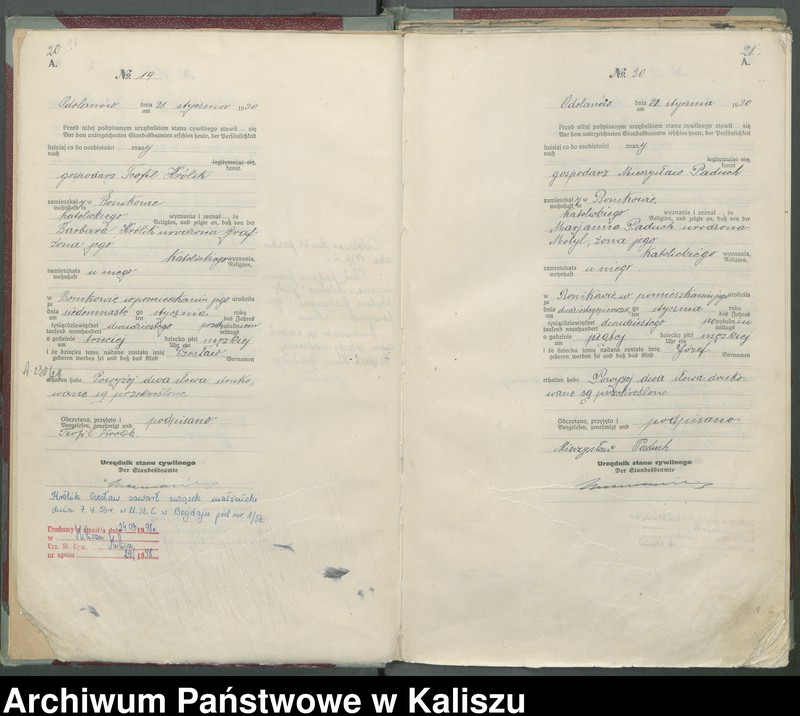 20
A.
№ 19
Odolanów dnia 21 stycznia 1930
am
Przed niżej podpisanym urzędnikiem stanu cywilnego stawił się
Vor dem unterzeichneten Standesbeamten erschien heute, der Persönlichkeit
dzisiaj co do osobistości znany
nach
legitymując się,
kannt.
gospodarz Teofil Królik
zamieszkały w Bonikowie
wohnhaft in
katolickiego wyznania i zeznał, że
Religion, und zeigte an, daß von der
Barbara Królik urodzona Graf
żona jego
katolickiego wyznania,
Religion,
zamieszkała u niego
wohnhaft
w Bonikowie w pomieszkaniu jego urodziła
zu
dnia siedemnaste go stycznia roku
am ten des Jahres
tysiącdziewięćset dwudziestego przedpołudniem
tausend neunhundert mittags
o godzinie trzeciej dziecko płci męzkiej
um Uhr ein
i że dziecku temu nadano zostało imię Czesław
geboren worden sei und daß das Kind Vornamen
erhalten habe. Powyżej dwa słowa druko-
wane są przekreślone
Odczytano, przyjęto i podpisano
Vorgelesen, genehmigt und
Teofil Królik
Urzędnik stanu cywilnego
Der Standesbeamte
Królik Czesław zawarł związek małżeński
dnia 7.4.56r. w U.St.C w Bogdaju pod nr. 1/56.
w
Urz. St. Cyw.
nr zgonu 29/1998
21
A.
№ 20
Odolanów dnia 22 stycznia 1930
am
Przed niżej podpisanym urzędnikiem stanu cywilnego stawił się
Vor dem unterzeichneten Standesbeamten erschien heute, der Persönlichkeit
dzisiaj co do osobistości znany
nach
legitymując się
kannt.
gospodarz Mieczysław Paduch
zamieszkały w Bonikowie,
wohnhaft in
katolickiego wyznania i zeznał, że
Religion, und zeigte an, daß von der
Marjanna Paduch urodzona
Motyl, żona jego
katolickiego wyznania,
Religion,
zamieszkała u niego
wohnhaft
w Bonikowie w pomieszkaniu jego urodziła
zu
dnia dwudziestegopierwszego stycznia roku
am ten des Jahres
tysiącdziewięćset dwudziestego po południu
tausend neunhundert mittags
o godzinie piątej dziecko płci męzkiej
um Uhr ein
i że dziecku temu nadano zostało imię Józef
geboren worden sei und daß das Kind Vornamen
erhalten habe. Powyżej dwa słowa druko-
wane są przekreślone
Odczytano, przyjęto i podpisano
Vorgelesen, genehmigt und
Mieczysław Paduch
Urzędnik stanu cywilnego
Der Standesbeamte
Archiwum Państwowe w Kaliszu